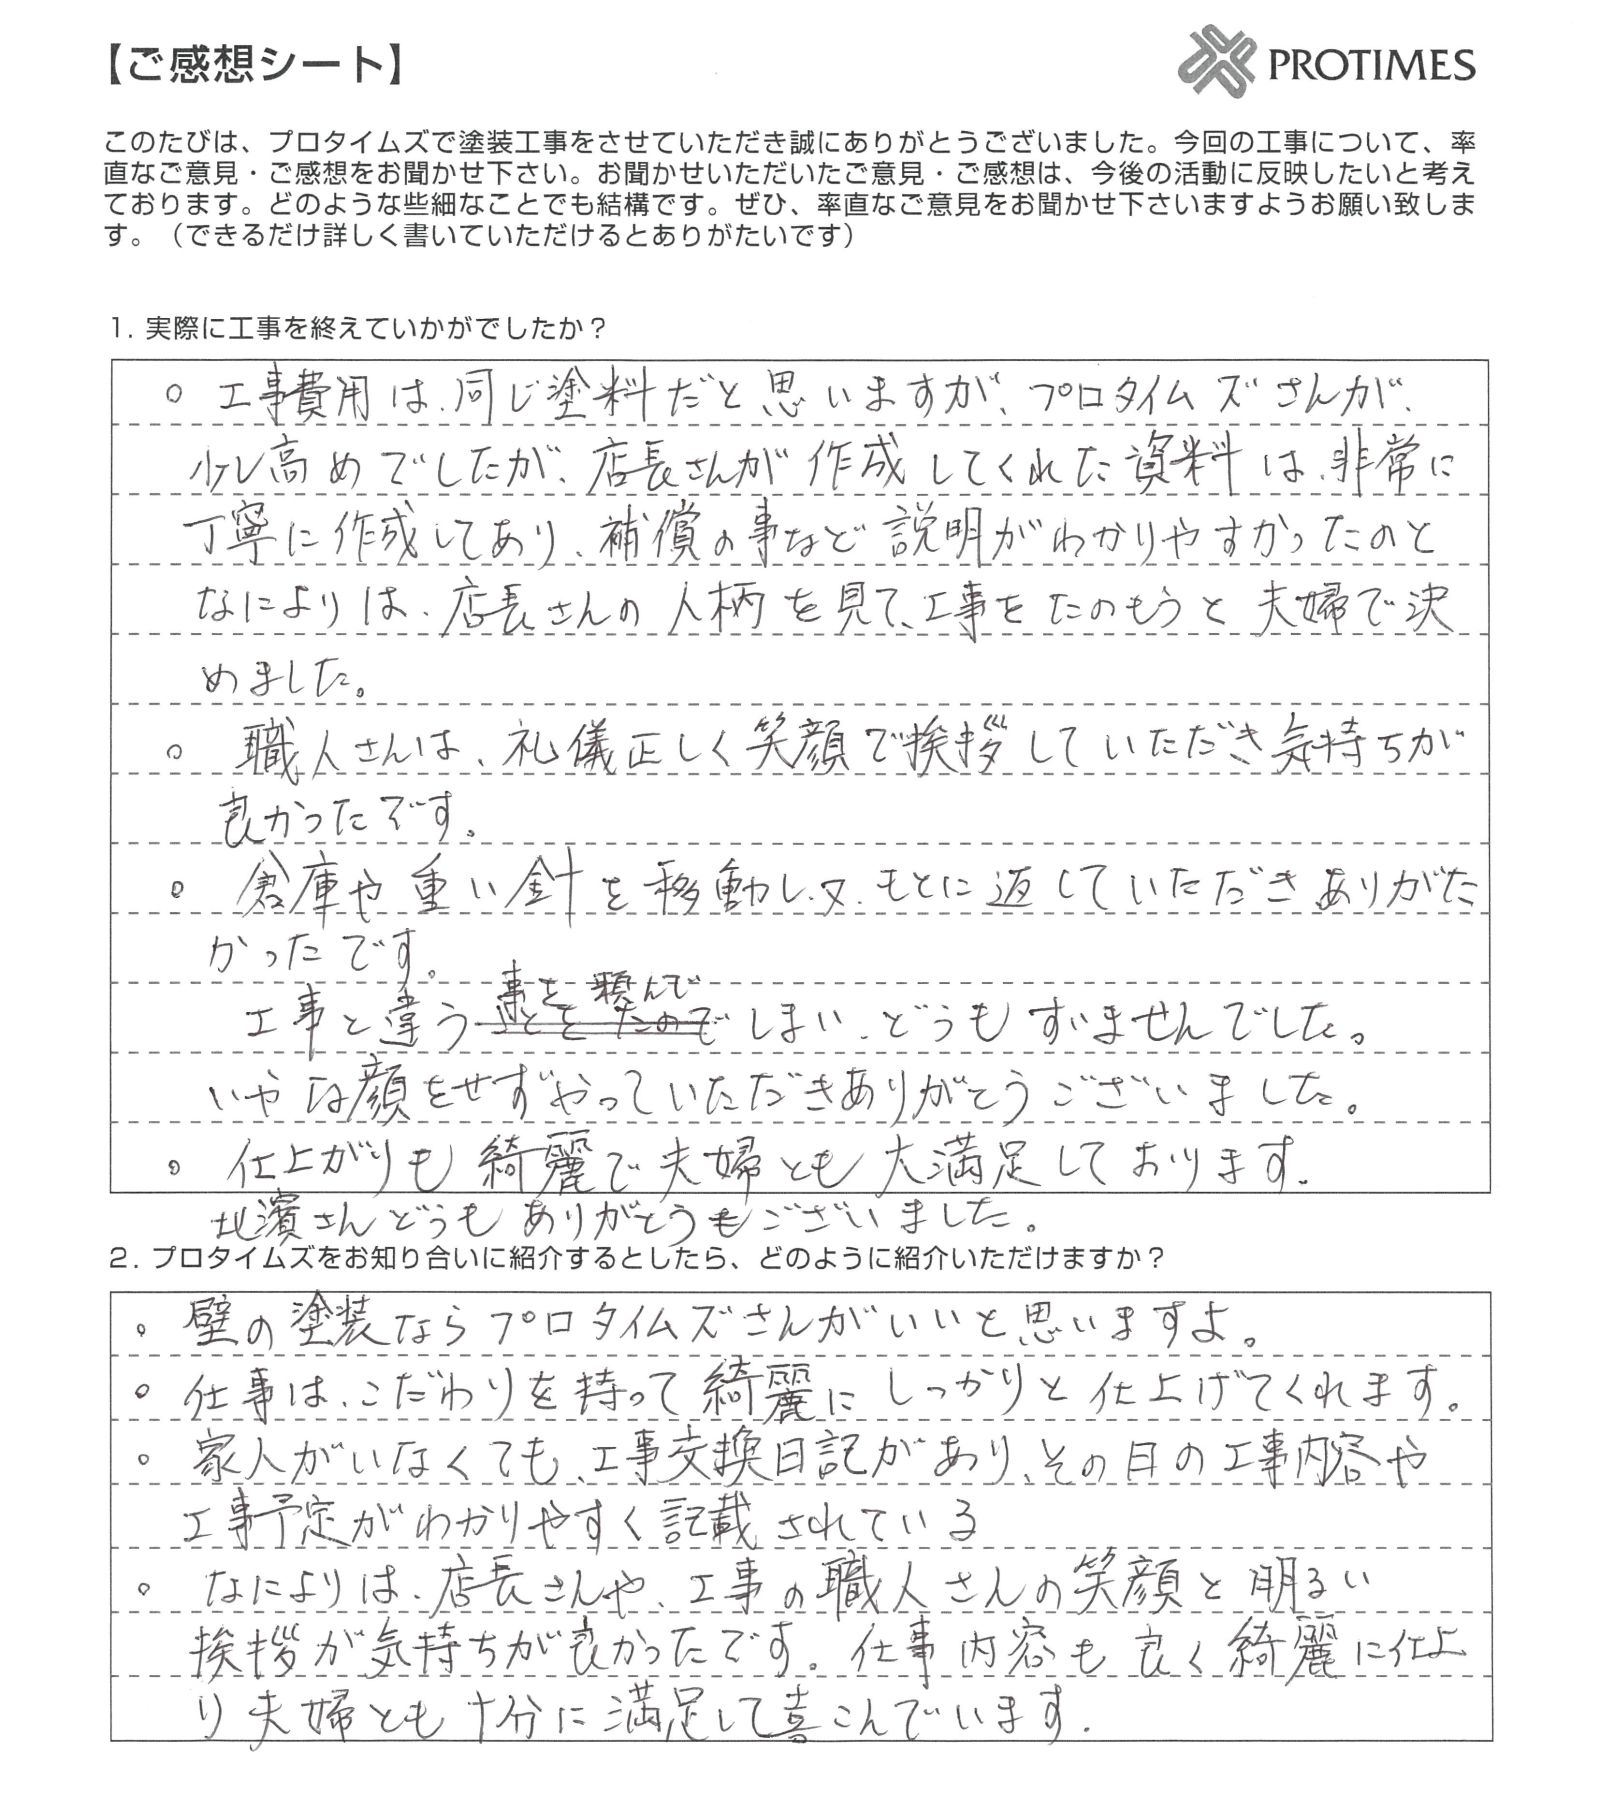 【ご感想シート】
PROTIMES
このたびは、プロタイムズで塗装工事をさせていただき誠にありがとうございました。今回の工事について、率
直なご意見・ご感想をお聞かせ下さい。お聞かせいただいたご意見・ご感想は、今後の活動に反映したいと考え
ております。どのような些細なことでも結構です。ぜひ、率直なご意見をお聞かせ下さいますようお願い致しま
す。（できるだけ詳しく書いていただけるとありがたいです）
1. 実際に工事を終えていかがでしたか？
○ 工事費用は、同じ塗料だと思いますが、プロタイムズさんが、
少し高めでしたが、店長さんが作成してくれた資料は、非常に
丁寧に作成してあり、補償の事など説明がわかりやすかったのと
なによりは、店長さんの人柄を見て、工事をたのもうと夫婦で決
めました。
○ 職人さんは、礼儀正しく笑顔で挨拶していただき気持ちが
良かったです。
○ 倉庫や重い針を移動し、又、もとに返していただきありがた
かったです。
事を 頼んで
工事と違うことをたのでしまい、どうもすいませんでした。
いやな顔をせずやっていただきありがとうございました。
○ 仕上がりも綺麗で夫婦とも大満足しております。
北濱さんどうもありがとうもございました。
2. プロタイムズをお知り合いに紹介するとしたら、どのように紹介いただけますか？
○ 壁の塗装ならプロタイムズさんがいいと思いますよ。
○ 仕事は、こだわりを持って綺麗にしっかりと仕上げてくれます。
○ 家人がいなくても、工事交換日記があり、その日の工事内容や
工事予定がわかりやすく記載されている
○ なによりは、店長さんや、工事の職人さんの笑顔と明るい
挨拶が気持ちが良かったです。仕事内容も良く綺麗に仕上
り夫婦とも十分に満足して喜こんでいます。